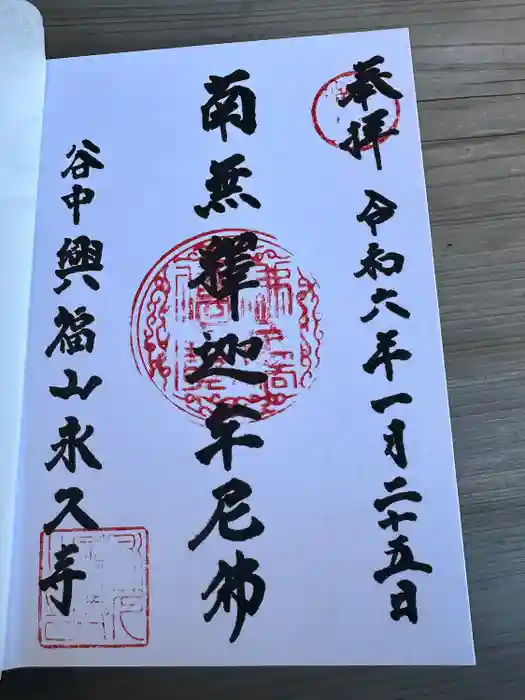 奉拝 令和六年一月二十五日
南無釋迦牟尼佛
谷中 興福山永久寺